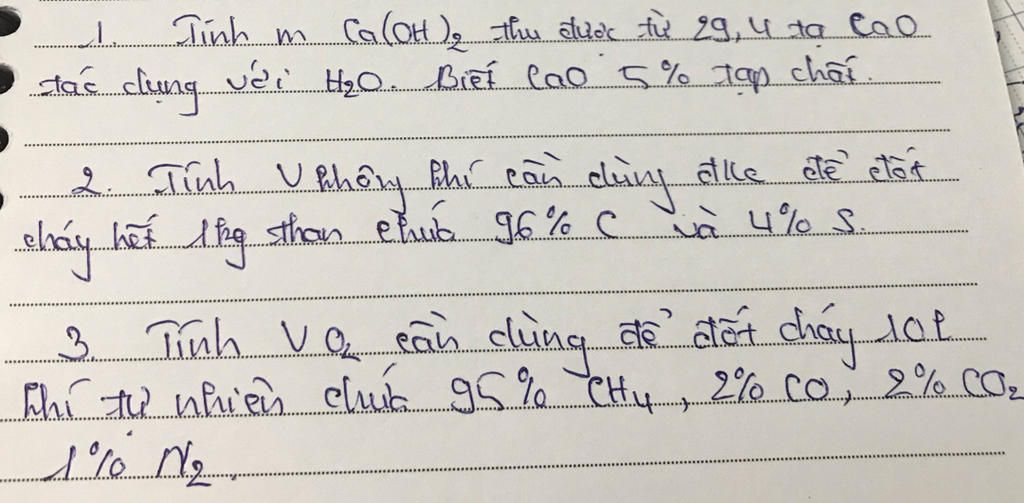 1. Tính m Ca(OH)2 thu được từ 29,4 tạ CaO
tác dụng với H2O. Biết CaO 5% tạp chất.
2. Tính V không khí cần dùng đkc để đốt
cháy hết 1kg than chứa 96% C và 4% S.
3. Tính V O2 cần dùng để đốt cháy 10l
khí tự nhiên chứa 95% CH4, 2% CO, 2% CO2
1% N2.